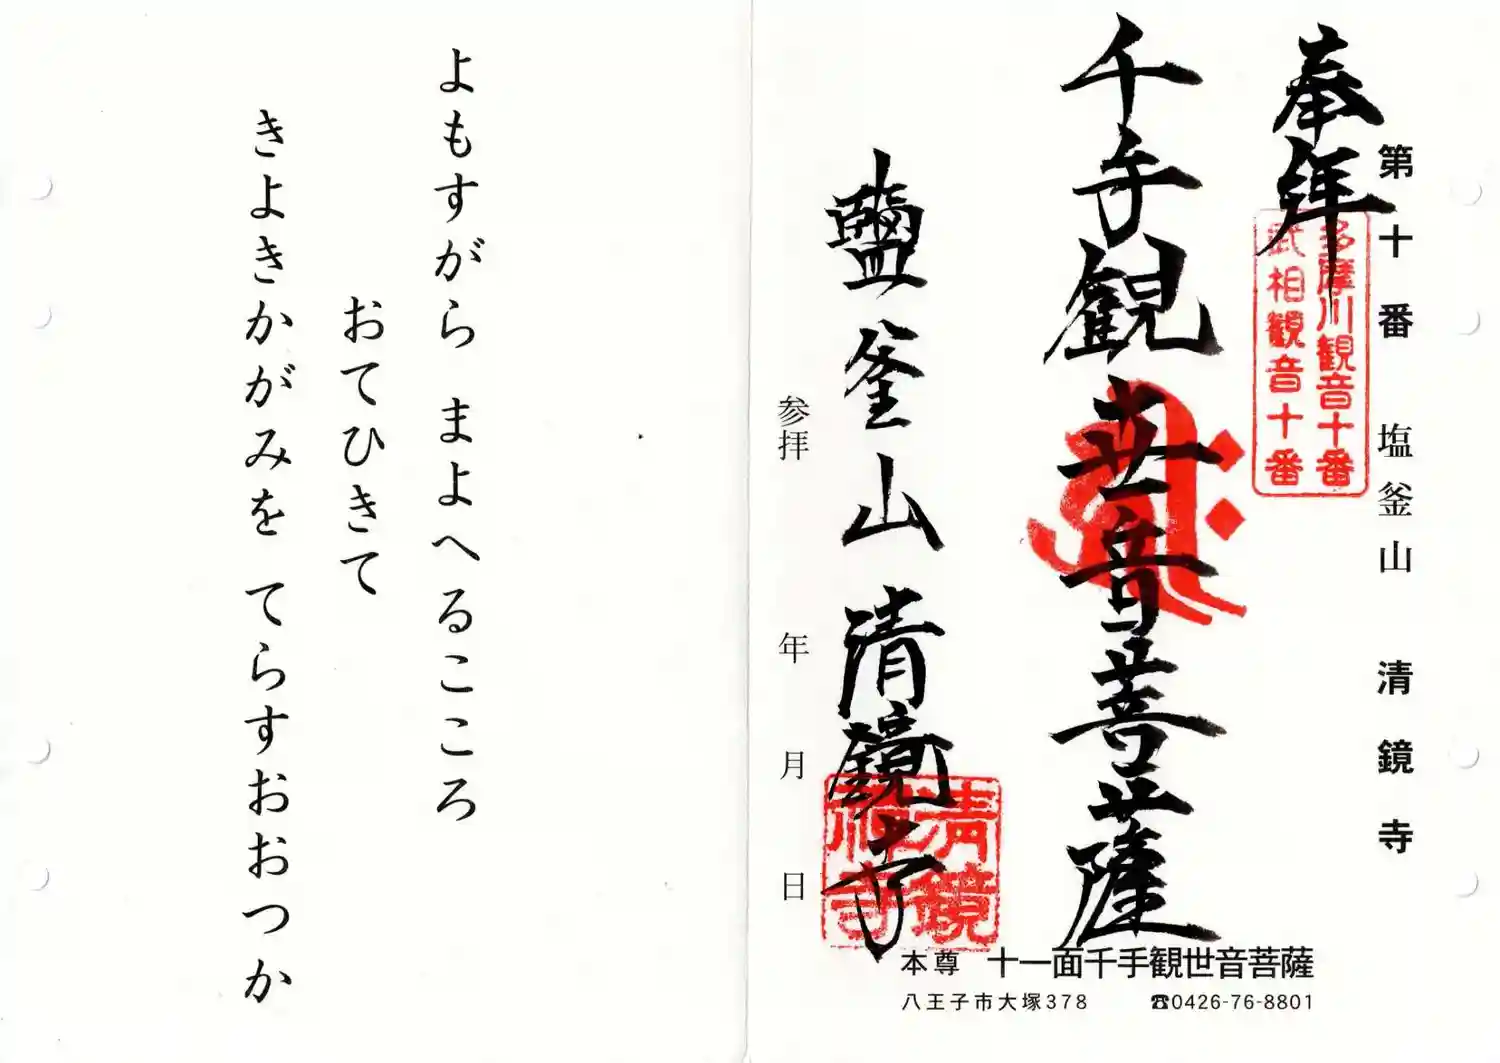 第十番 塩釜山 清鏡寺
奉拝
多摩川観音十番
武相観音十番
千手観世音菩薩
鹽釜山 清鏡寺
清鏡
禅寺
参拝 年 月 日
本尊 十一面千手観世音菩薩
八王子市大塚378 ☎0426-76-8801
よもすがら まよへるこころ
おてひきて
きよきかがみを てらすおおつか